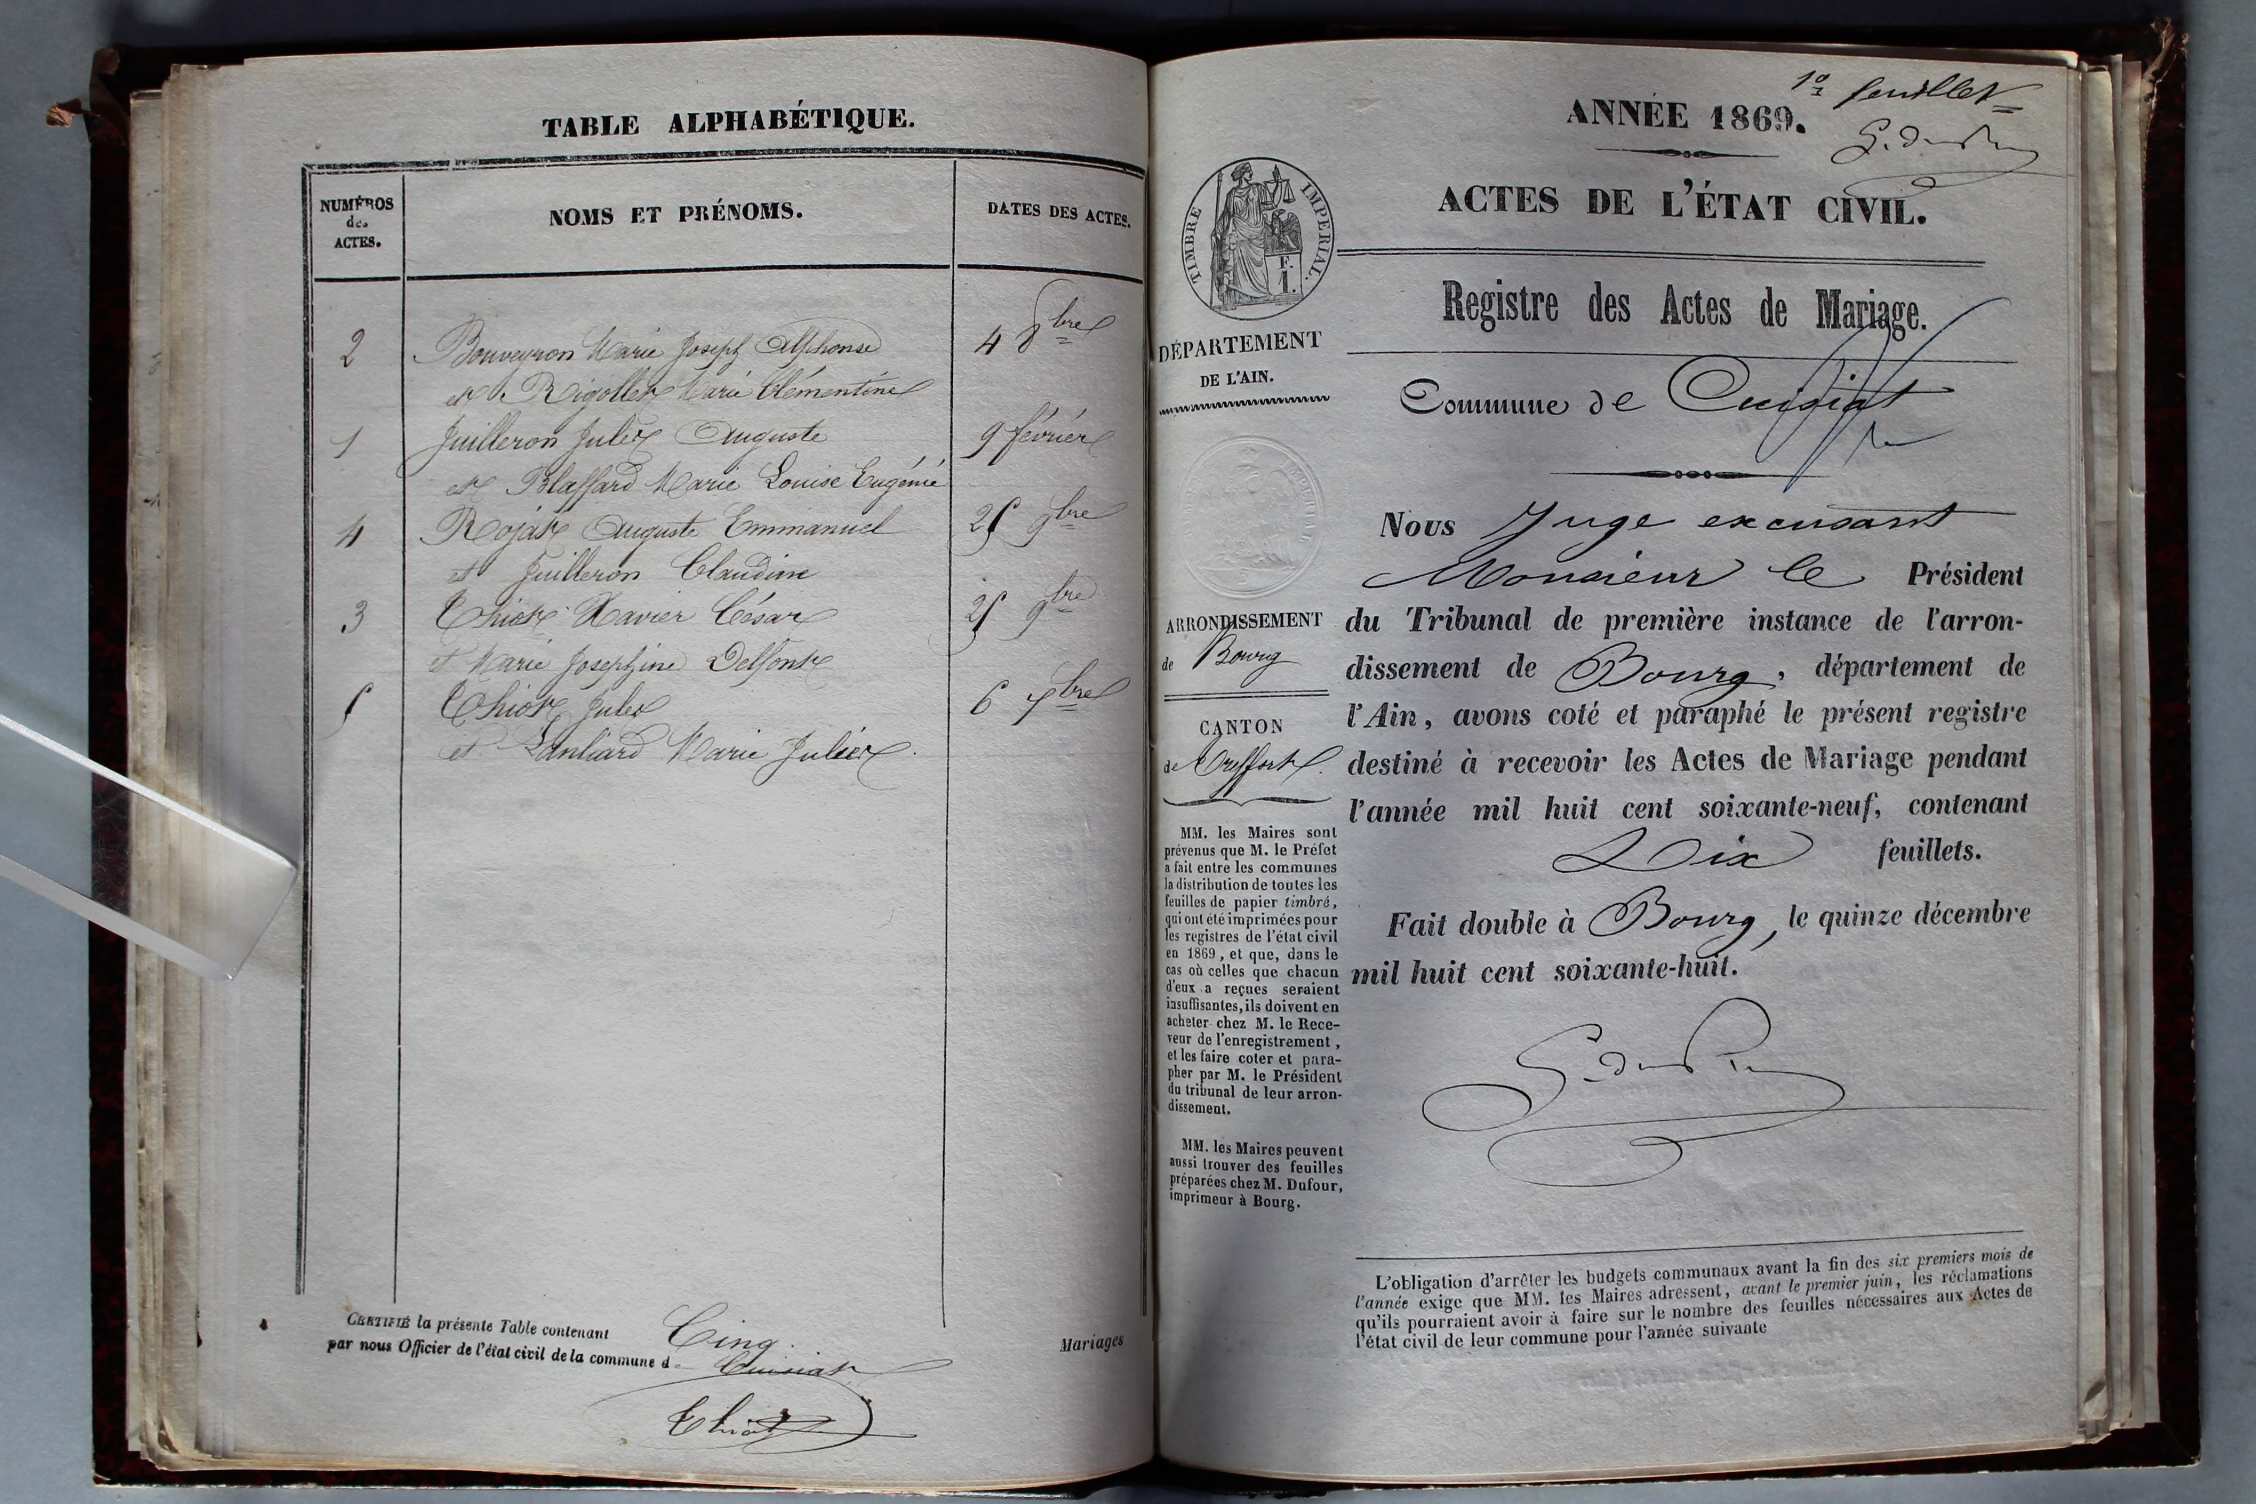 TABLE ALPHABÉTIQUE.
NUMÉROS des ACTES.
NOMS ET PRÉNOMS.
DATES DES ACTES.
2 Bouveyron Marie Joseph Alphonse 4 8bre
et Rigollet Marie Clémentine
1 Juilleron Jules Auguste 9 février
et Blaffard Marie Louise Eugénie
4 Rojat Auguste Emmanuel 25 9bre
et Juilleron Claudine
3 Thiot Xavier César 25 9bre
et Marie Josephine Delfont
5 Thiot Jules 6 Xbre
et Marie Julie
CERTIFIÉ la présente Table contenant Cinq Mariages
par nous Officier de l'état civil de la commune de Cuisiat
Thiot
1er feuillet
ANNÉE 1869.
ACTES DE L'ÉTAT CIVIL.
TIMBRE IMPERIAL.
F. 1.
Registre des Actes de Mariage.
DÉPARTEMENT
DE L'AIN.
Commune de Cuisiat
Nous Juge excusant
Monsieur le Président
du Tribunal de première instance de l'arron-
dissement de Bourg, département de
l'Ain, avons coté et paraphé le présent registre
destiné à recevoir les Actes de Mariage pendant
l'année mil huit cent soixante-neuf, contenant
Dix feuillets.
Fait double à Bourg, le quinze décembre
mil huit cent soixante-huit.
ARRONDISSEMENT
de Bourg
CANTON
de Treffort.
MM. les Maires sont
prévenus que M. le Préfet
a fait entre les communes
la distribution de toutes les
feuilles de papier timbré,
qui ont été imprimées pour
les registres de l'état civil
en 1869, et que, dans le
cas où celles que chacun
d'eux a reçues seraient
insuffisantes, ils doivent en
acheter chez M. le Rece-
veur de l'enregistrement,
et les faire coter et para-
pher par M. le Président
du tribunal de leur arron-
dissement.
MM. les Maires peuvent
aussi trouver des feuilles
préparées chez M. Dufour,
imprimeur à Bourg.
L'obligation d'arrêter les budgets communaux avant la fin des six premiers mois de
l'année exige que MM. les Maires adressent, avant le premier juin, les réclamations
qu'ils pourraient avoir à faire sur le nombre des feuilles nécessaires aux Actes de
l'état civil de leur commune pour l'année suivante